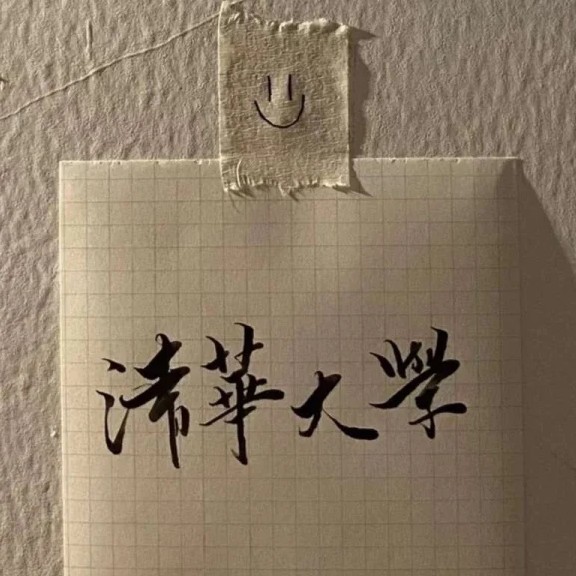 清華大學